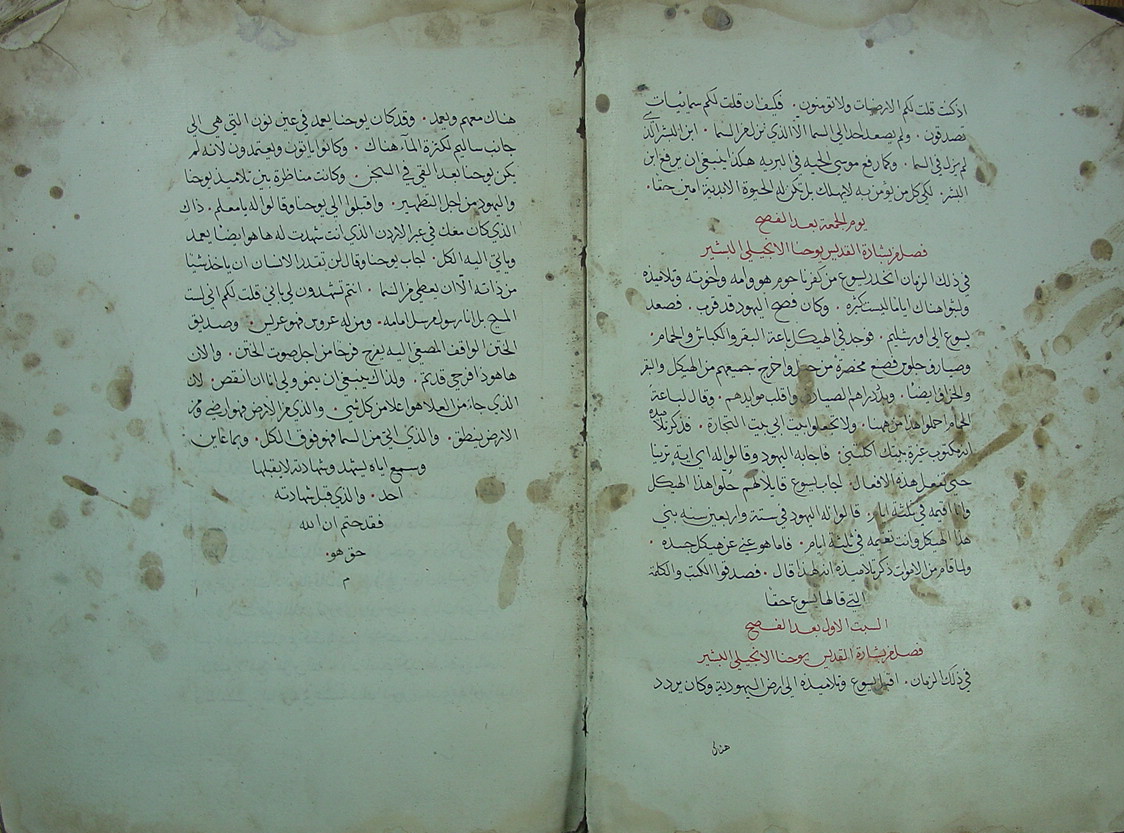 اذ كنت قلت لكم الارضيات ولا تومنون. فكيف ان قلت لكم سمائيات
تصدقون. ولم يصعد احد الى السما الا الذي نزل من السما. ابن البشر الذي
لم يزل في السما. وكما رفع موسى الحيه في البريه هكذا ينبغي ان يرفع ابن
البشر. لكي كل من يؤمن به لا يهلك بل تكون له الحيوة الابدية امين حقا.
يوم الجمعة بعد الفصح
فصل من بشارة القديس يوحنا الانجيلي البشير
في ذلك الزمان انحدر يسوع من كفرناحوم هو وامه واخوته وتلاميذه
ولبثوا هناك اياما ليست كثيره. وكان فصح اليهود قد قرب. فصعد
يسوع الى اورشليم. فوجد في الهيكل باعة البقر والكباش والحمام.
وصيارف جلوس فصنع مخصرة من حبل واخرج جميعهم من الهيكل والبقر
والخراف ايضا. وبدد دراهم الصيارف واقلب موايدهم. وقال لباعة
الحمام احملوا هذا من ههنا. ولا تجعلوا بيت ابي بيت التجارة. فذكر تلاميذه
انه مكتوب غيرة بيتك اكلتني. فاجابه اليهود وقالوا له اي ايه ترينا
حتى تفعل هذه الافعال. اجاب يسوع قايلا لهم حلوا هذا الهيكل
وانا اقيمه في ثلثة ايام. قالوا له اليهود في ستة واربعين سنه بني
هذا الهيكل وانت تقيمه في ثلثة ايام. فاما هو عنى عن هيكل جسده.
ولما قام من الاموات ذكر تلاميذه انه لهذا قال. فصدقوا الكتب والكلمة
التي قالها يسوع حقا
السبت الاول بعد الفصح
فصل من بشارة القديس يوحنا الانجيلي البشير
في ذلك الزمان. اقبل يسوع وتلاميذه الى ارض اليهودية وكان يردد
هناك
هناك معهم ويعمد. وقد كان يوحنا يعمد في عين نون التي هي الى
جانب ساليم لكثرة المآء هناك. وكانوا ياتون ويعتمدون لانه لم
يكن يوحنا بعد القي في السجن. وكانت مناظرة بين تلاميذ يوحنا
واليهود من اجل التطهير. واقبلوا الى يوحنا وقالوا له يا معلم. ذاك
الذي كان معك في عبر الاردن الذي انت شهدت له ها هو ايضا يعمد
وياتي اليه الكل. اجاب يوحنا وقال لن تقدر الانسان ان ياخذ شيئا
من ذاته الا ان يعطى من السما. انتم تشهدون لي باني قلت لكم اني لست
المسيح بل انا رسول مرسل امامه. ومن له عروس فهو عريس. وصديق
الختن الواقف المصغي اليه يفرح فرحا من اجل صوت الختن. والان
ها هوذا فرحي قد تم. ولذاك ينبغي ان ينمو ولي انا ان انقص. لان
الذي جاء من العلا هو اعلا من كل شي. والذي من الارض فهو ارضي ومن
الارض ينطق. والذي اتى من السما فهو فوق الكل. وبما عاين
وسمع اياه يشهد وشهادته لا يقبلها
احد. والذي قبل شهادته
فقد ختم ان الله
حق هو.
م